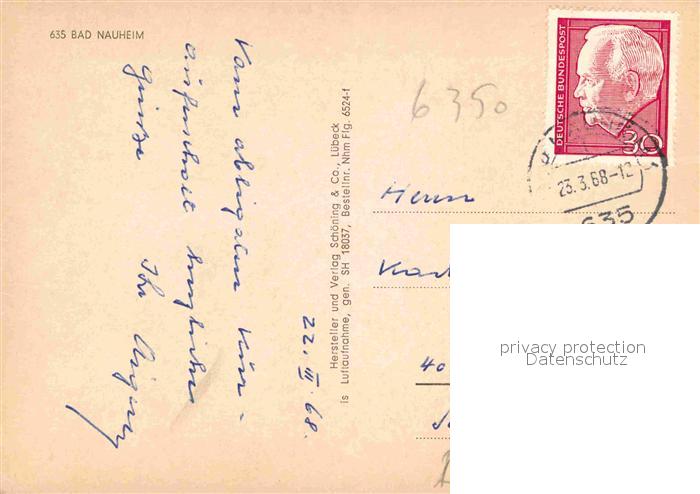 635 BAD NAUHEIM
Vom obligaten Kur-
aufenthalt herzliche
Grüsse
Ihr
22. III. 68.
Hersteller und Verlag Schöning & Co., Lübeck
is Luftaufnahme, gen. SH 18037, Bestellnr. Nhm Flg. 6524-f
6350
DEUTSCHE BUNDESPOST
30
23.3.68-12
635
Herrn
Karl
40
privacy protection
Datenschutz